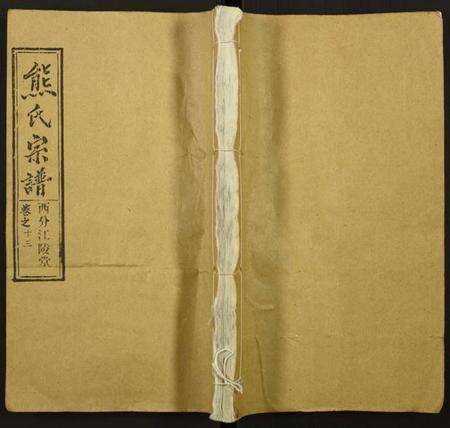 熊氏宗譜
西分江陵堂
卷之十三